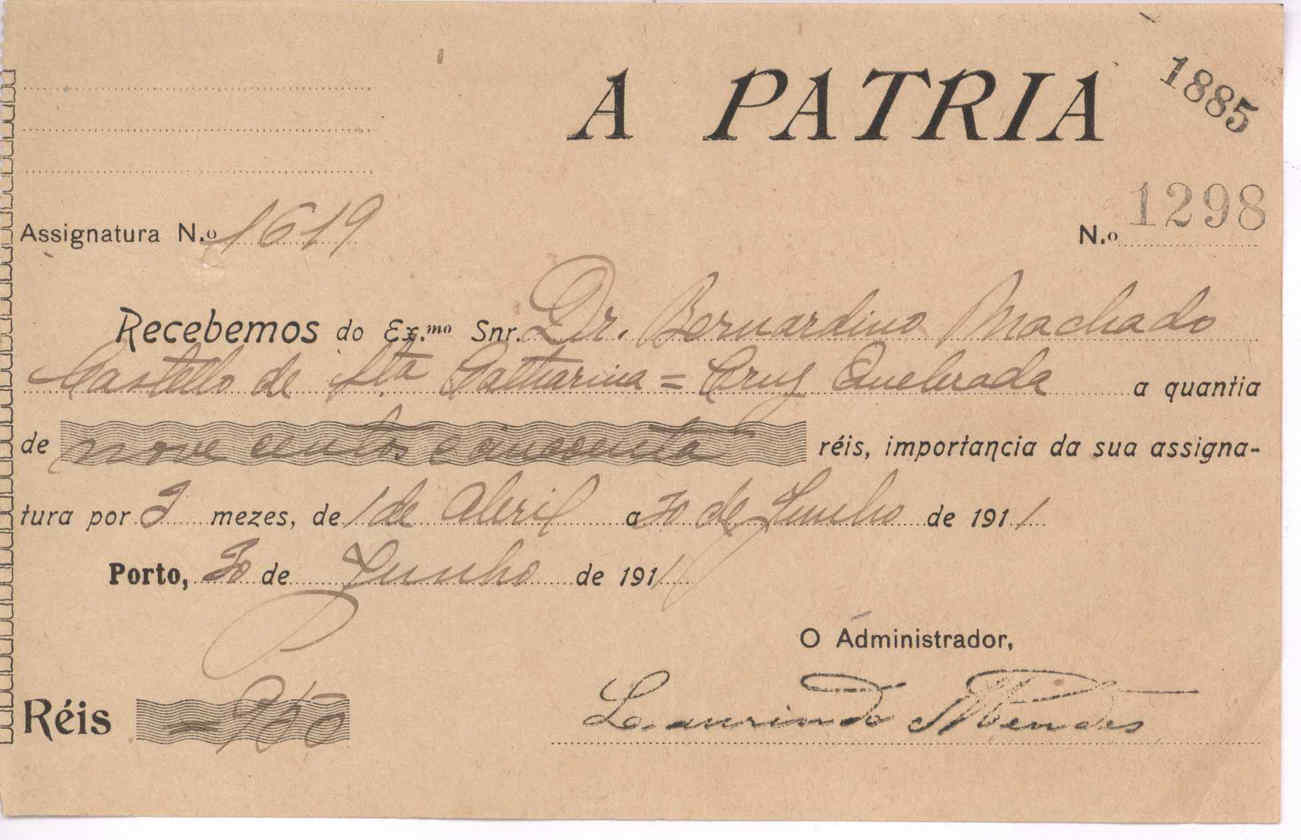 A PATRIA
1885
Assignatura N.º 1619
N.º 1298
Recebemos do Ex.mo Snr. Dr. Bernardino Machado
Castello de Sta Catharina = Cruz Quebrada a quantia
de nove centos cincoenta réis, importancia da sua assigna-
tura por 3 mezes, de 1 de Abril a 30 de Junho de 1911
Porto, 30 de Junho de 1911
O Administrador,
Réis = 950
Laurindo Mendes